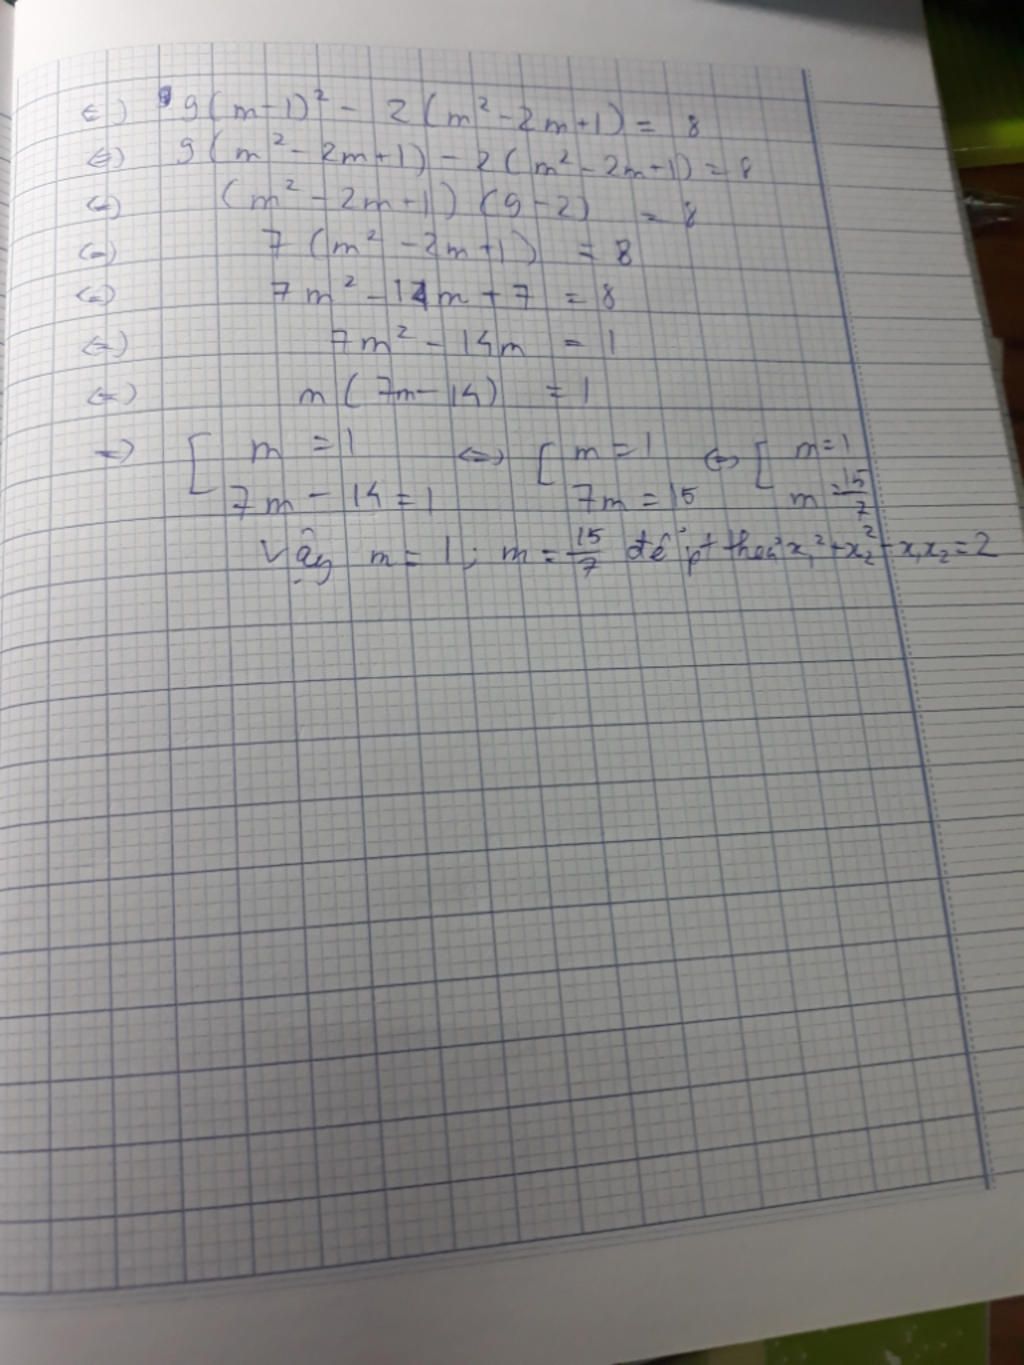 <=> 9(m-1)² - 2(m²-2m+1) = 8
<=> 9(m²-2m+1) - 2(m²-2m+1) = 8
<=> (m²-2m+1)(9-2) = 8
<=> 7(m²-2m+1) = 8
<=> 7m²-14m+7 = 8
<=> 7m²-14m = 1
<=> m(7m-14) = 1
=> [ m = 1 <=> [ m = 1 <=> [ m = 1
7m - 14 = 1 7m = 15 m = 15/7
Vậy m = 1; m = 15/7 để pt thoả x₁²+x₂²-x₁x₂=2